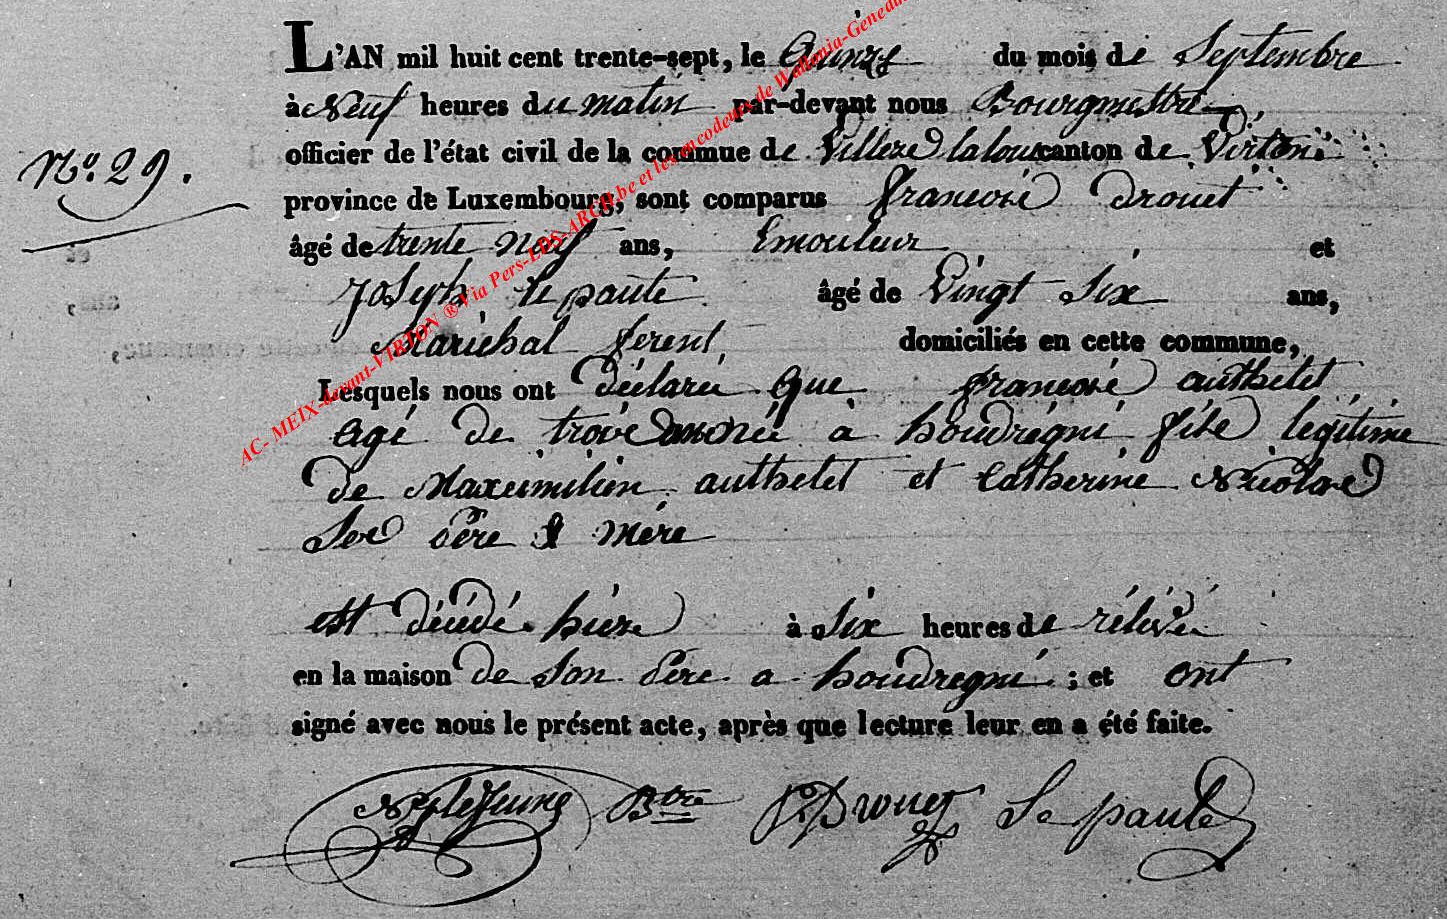 L'AN mil huit cent trente-sept, le Quinze du mois de Septembre
à Neuf heures du matin par-devant nous Bourgmestre
N.o 29.
officier de l'état civil de la commue de Villere laloue canton de Virton
province de Luxembourg, sont comparus francois drouet
âgé de trente neuf ans, Emouleur et
Joseph le paute âgé de Vingt Six ans,
Marichal ferent, domiciliés en cette commune,
Lesquels nous ont déclaré que francois authelet
agé de trois année à houdrégni fils légitime
de Maximilien authelet et Catherine Nicolas
Ses père & mère
est décédé hiere à Six heures de rélévée
en la maison de son père a houdregni ; et ont
signé avec nous le présent acte, après que lecture leur en a été faite.
LeJeune Btre Drouet Le paute
AC- MEIX-devant-VIRTON ® Via Pers-EDS-ARCH.be et les encodeurs de Wallonia-Genea